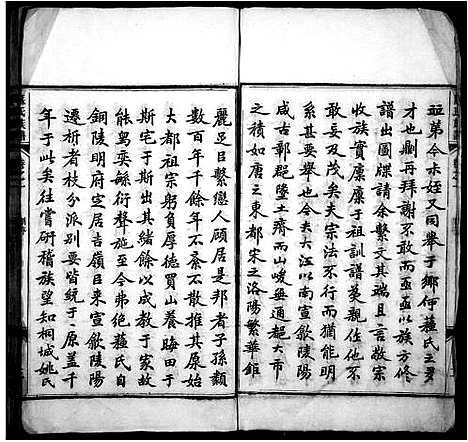 並弟令未姪又同舉于鄉伊蘓氏之多
才也劃再拜謝不敢而亟亟以族方修
譜出圖牒請余繫文其端且言敬宗
收族實廩廩于祖訓譜莫親住他何
敢妄及茂矣夫宗法不行而猶能明
系其要舉也今夫大江以南宣歙陵陽
咸古鄣郡墜土膏而山峻無通都大市
之積如唐之東都宋之洛陽繁華鉅
麗足㠯繫戀人顧居是邦者子孫類
數百年千餘年不紊不散推其原始
大都祖宗躬負厚德買山養晦田于
斯宅于斯㠯其緒餘以成教于家故
能舄奕緜衍聲施至今弗絶蘓氏自
銅陵明府定居吉嶺㠯來宣歙陵陽
遷析者枝分派别要皆統于一原盖千
年于此矣往嘗研稽族望知桐城姚氏